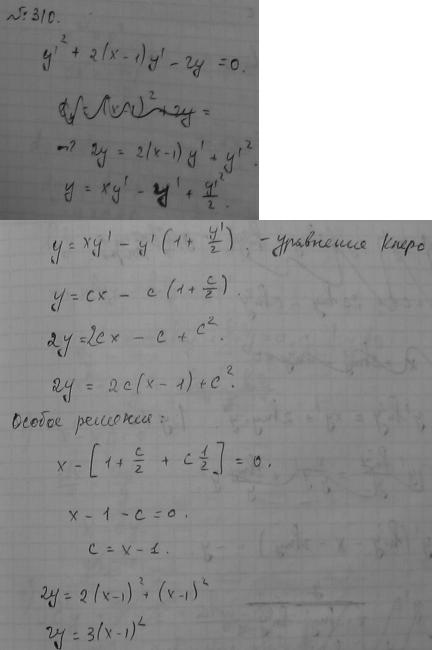 №310.
y'² + 2(x-1)y' - 2y = 0.
⇒ 2y = 2(x-1)y' + y'².
y = xy' - y' + y'²/2.
y = xy' - y'(1 + y'/2). - уравнение Клеро
y = cx - c(1 + c/2).
2y = 2cx - c + c².
2y = 2c(x-1) + c².
Особое решение:
x - [1 + c/2 + c 1/2] = 0.
x - 1 - c = 0.
c = x - 1.
2y = 2(x-1)² + (x-1)²
2y = 3(x-1)²